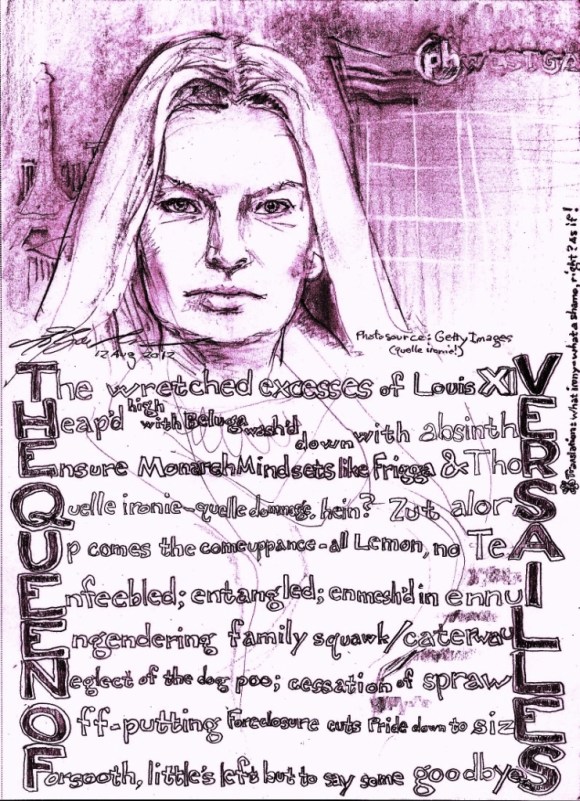 ph WESTGA
Photo source: Getty Images
(quelle ironie!)
12 Aug 2012
The wretched excesses of Louis XIV
Heap'd high with Beluga wash'd down with absinthE
Ensure Monarch Mindsets like Frigga & ThoR
Quelle ironie-quelle dommage, hein? Zut alorS
Up comes the comeuppance - all Lemon, no TeA
Enfeebled; entangled; enmesh'd in ennuI
Engendering family squawk/caterwauL
Neglect of the dog poo; cessation of sprawL
Off-putting Foreclosure cuts Pride down to sizE
Forsooth, little's left but to say some goodbyeS
what irony-what a shame, right? As if!